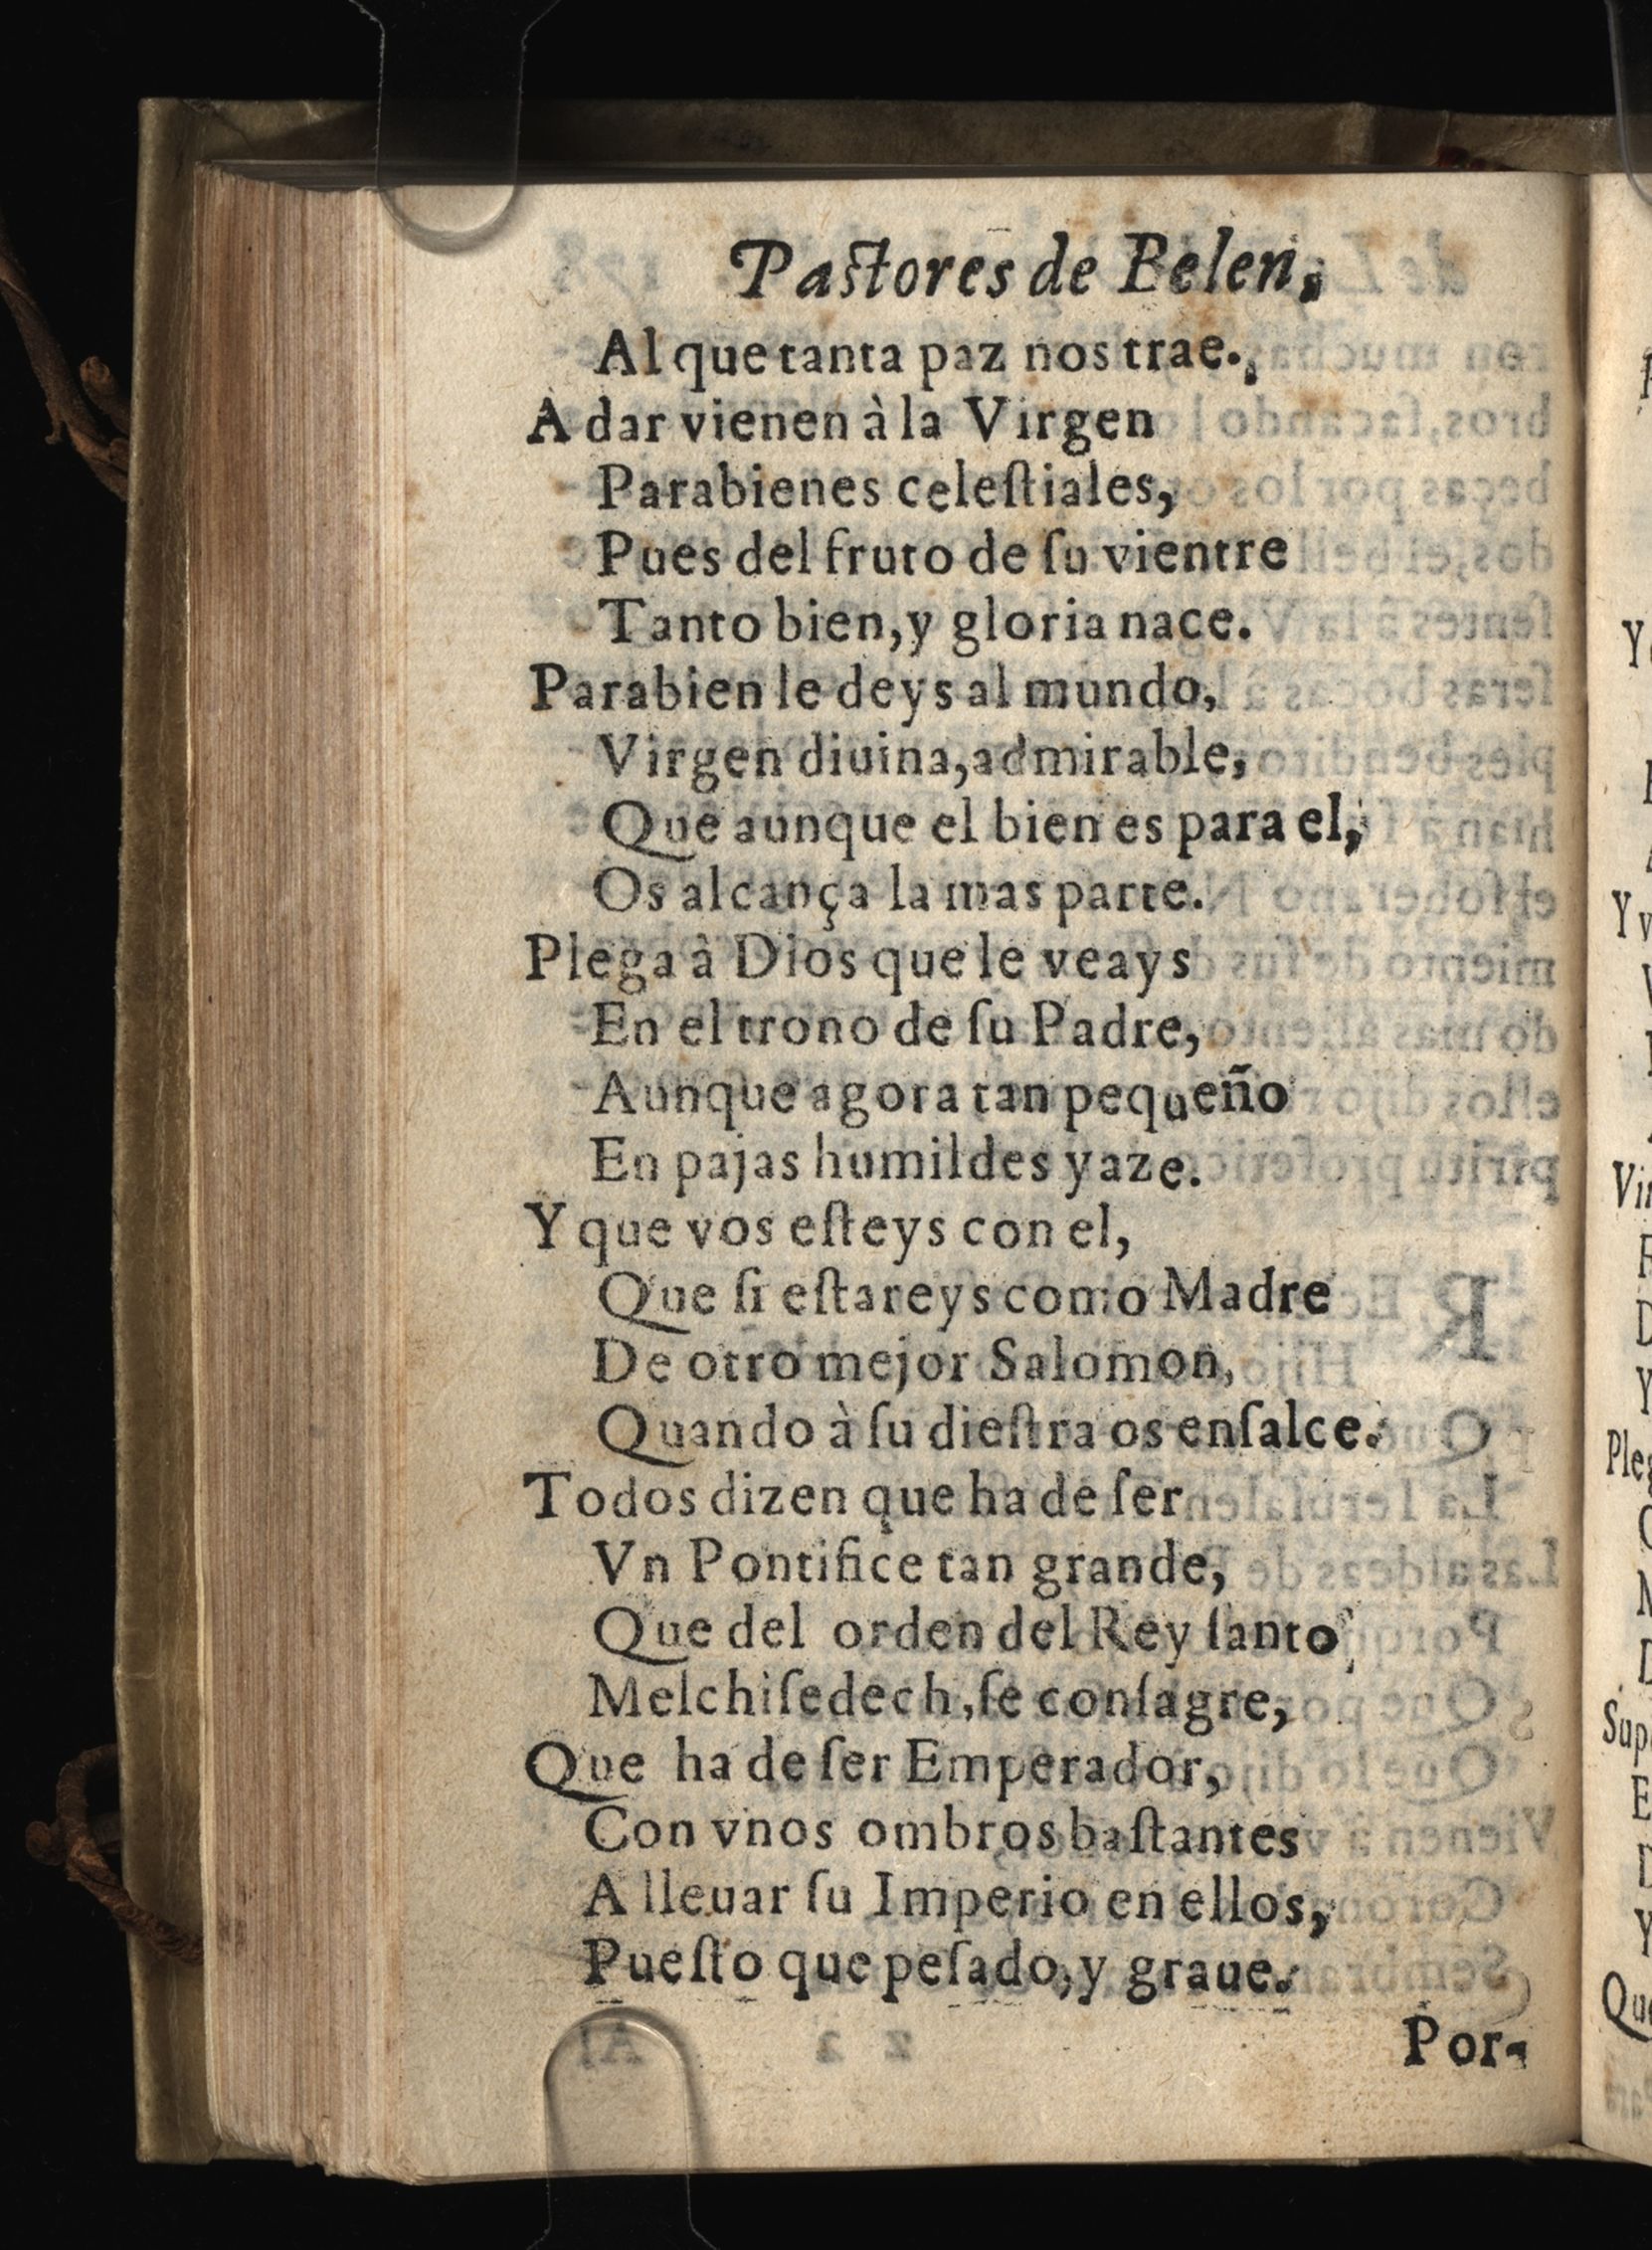 Paſtores de Belen,
Al que tanta paz nos trae.
A dar vienen à la Virgen
Parabienes celeſtiales,
Pues del fruto de ſu vientre
Tanto bien, y gloria nace.
Parabien le deys al mundo,
Virgen diuina, admirable,
Que aunque el bien es para el,
Os alcança la mas parte.
Plega à Dios que le veays
En el trono de ſu Padre,
Aunque agora tan pequeño
En pajas humildes yaze.
Y que vos eſteys con el,
Que ſi eſtareys como Madre
De otro mejor Salomon,
Quando à ſu dieſtra os enſalce.
Todos dizen que ha de ſer
Vn Pontifice tan grande,
Que del orden del Rey ſanto,
Melchiſedech, ſe conſagre,
Que ha de ſer Emperador,
Con vnos ombros baſtantes
A lleuar ſu Imperio en ellos,
Pueſto que peſado, y graue.
Por-